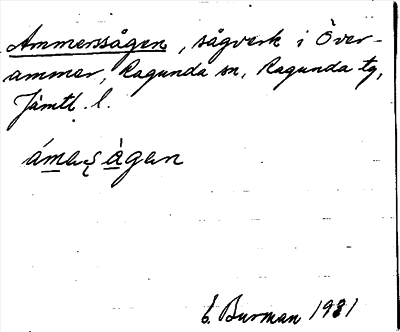 Ammerssågen, sågverk i Över-
ammer, Ragunda sn, Ragunda tg,
Jämtl. l.
ámaʂ ågan
E. Burman 1931